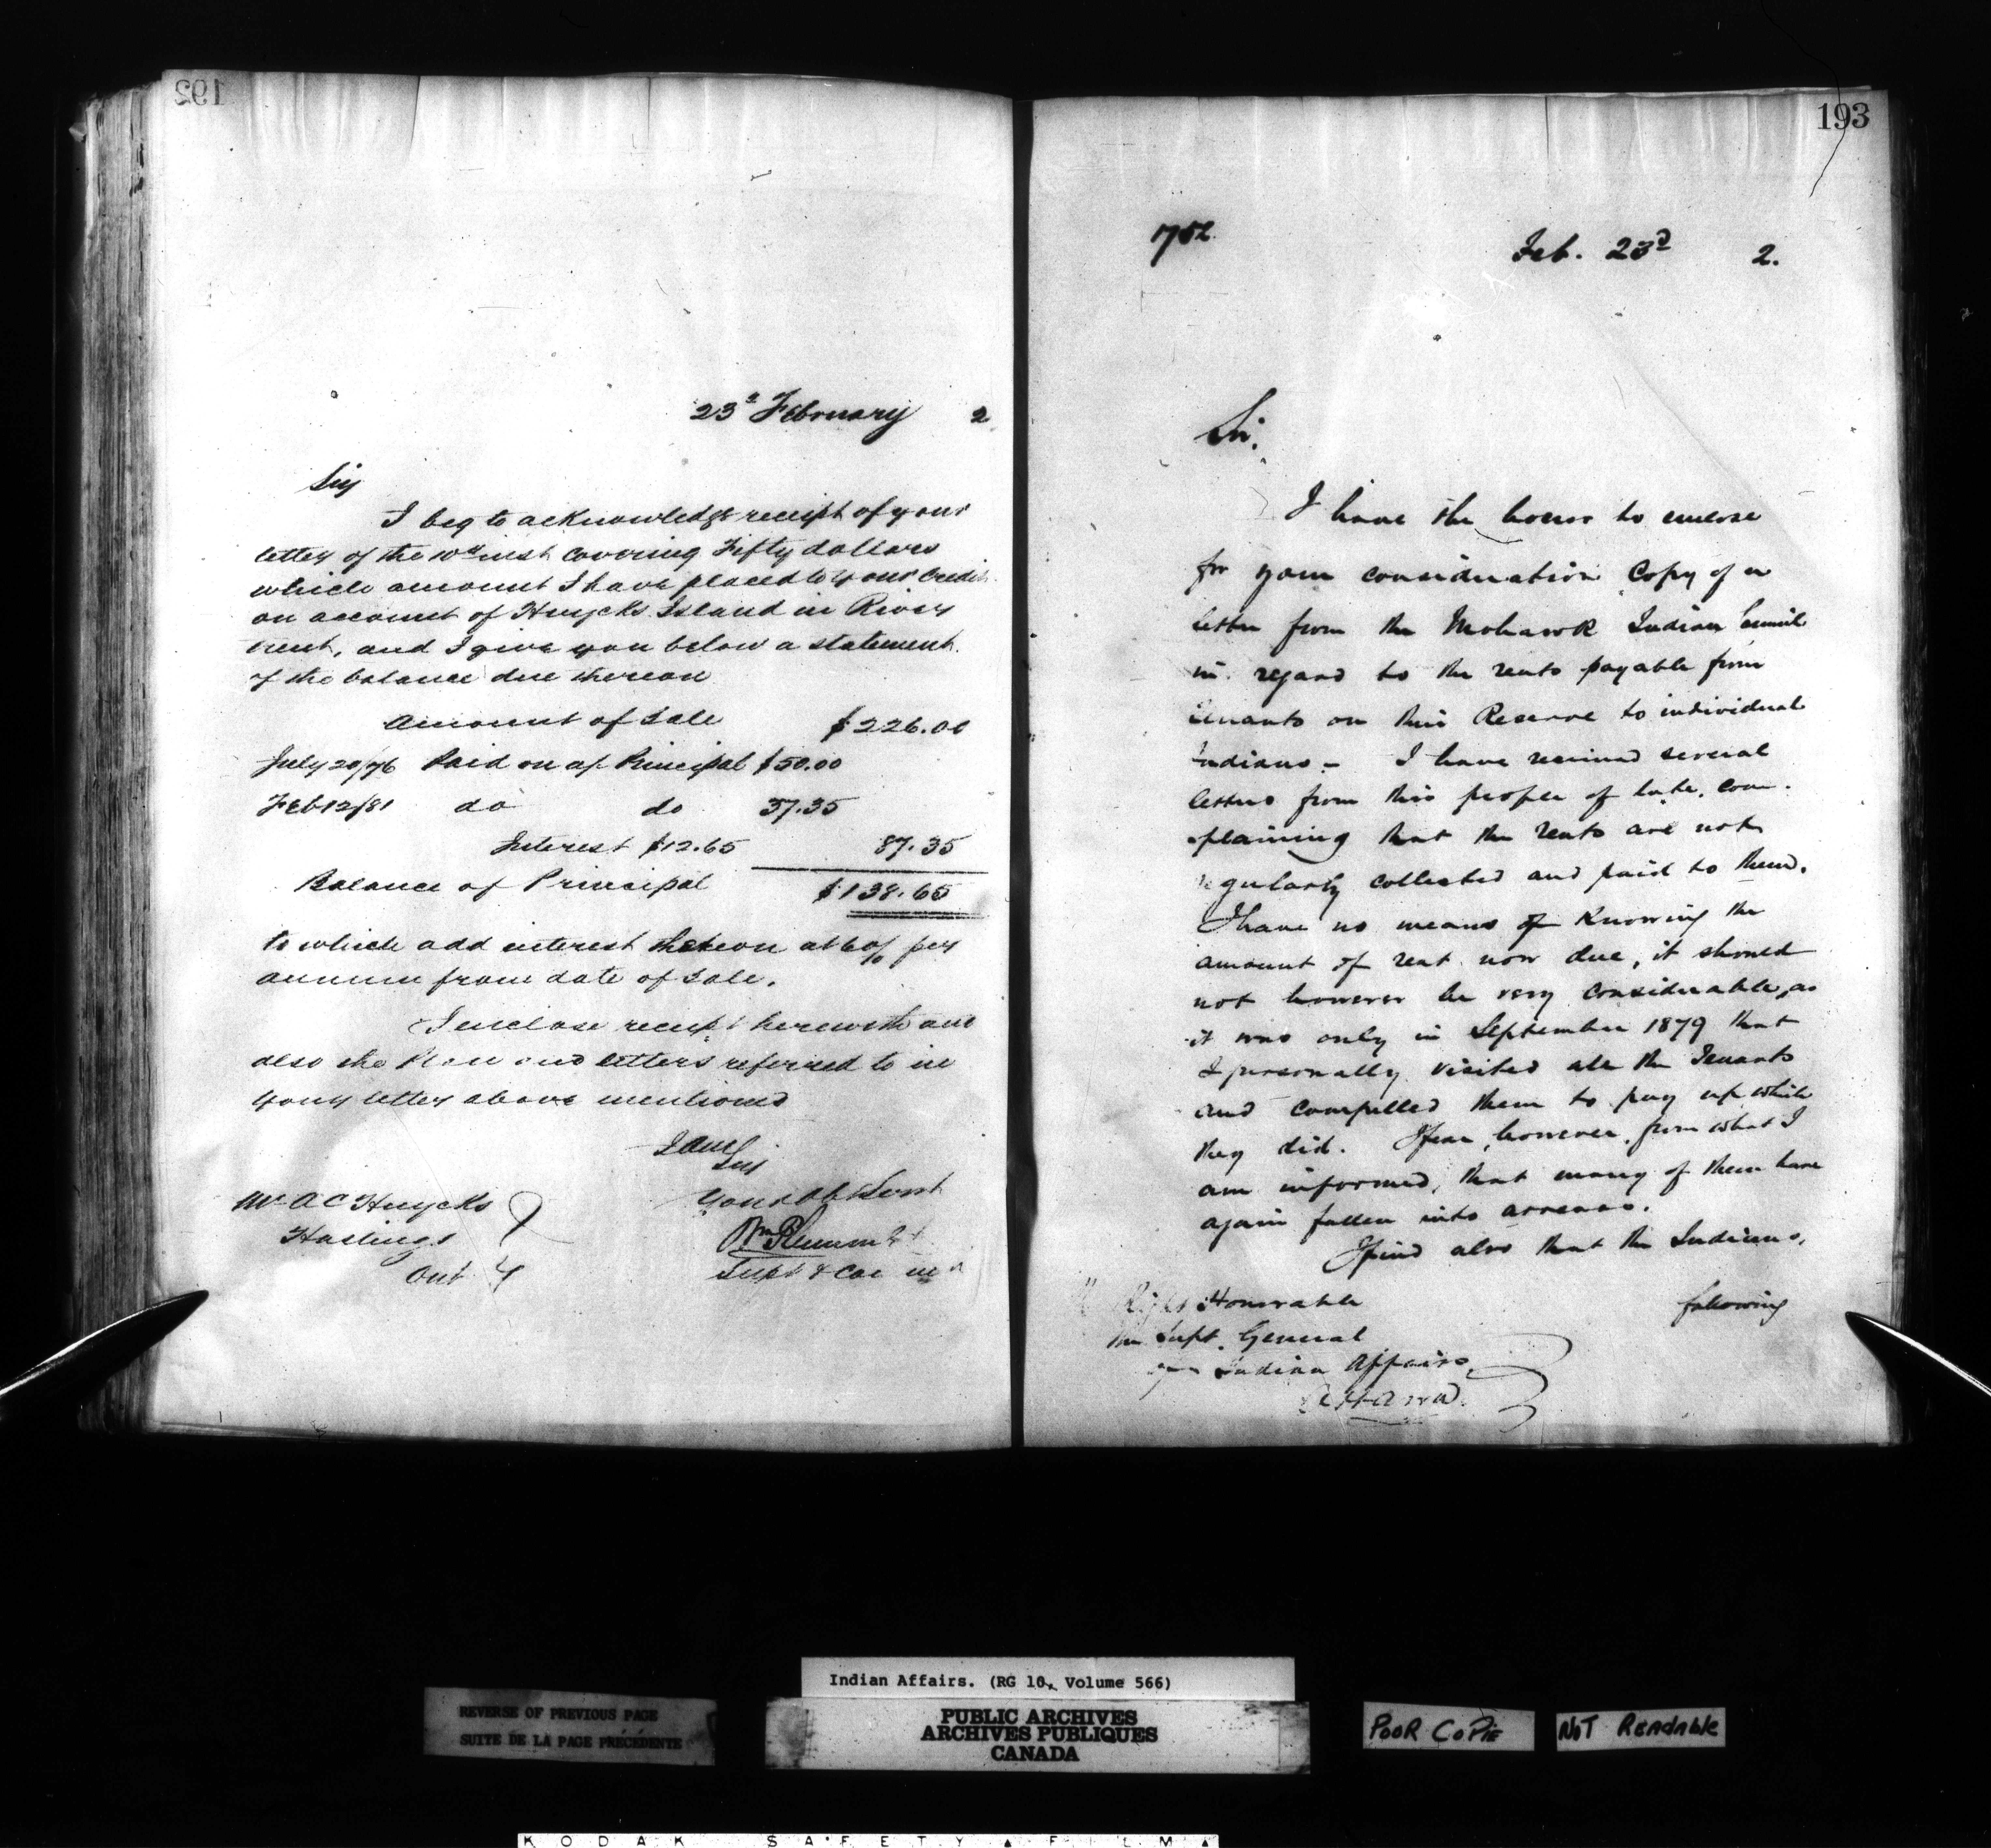 192
23d February 2
Sir
I beg to acknowledge receipt of your
letter of the 10th inst covering Fifty dollars
which amount I have placed to your Credit
on account of Huycks Island in River
Trent, and I give you below a statement
of the balance due thereon
Amount of Sale $226.00
July 20/76 Paid on a/c Principal $50.00
Feb 12/81 do do 37.35
Interest $12.65 87.35
Balance of Principal $138.65
to which add interest thereon at 6% per
annum from date of sale.
I enclose receipt herewith and
also the Plan and letters referred to in
your letter above mentioned
I am
Sir
Your Obt Servt
Wm Plummer
Supt & Com
Mr A C Huycks
Hastings
Ont
193
752
Feb. 23d 2.
Sir.
I have the honor to enclose
for your consideration Copy of a
letter from the Mohawk Indian Council
in regard to the rents payable from
tenants on their Reserve to individual
Indians. – I have received several
letters from this people of late, com-
plaining that the rents are not
regularly collected and paid to them.
I have no means of Knowing the
amount of rent now due, it should
not however be very considerable, as
it was only in September 1879 that
I personally visited all the Tenants
and compelled them to pay up which
they did. I fear, however, from what I
am informed, that many of them have
again fallen into arrears.
I find also that the Indians,
following
Right Honorable
The Supt. General
Indian Affairs,
Ottawa.
Indian Affairs. (RG 10, Volume 566)
REVERSE OF PREVIOUS PAGE
SUITE DE LA PAGE PRÉCÉDENTE
PUBLIC ARCHIVES
ARCHIVES PUBLIQUES
CANADA
POOR COPIE
NOT READABLE
KODAK SAFETY FILM